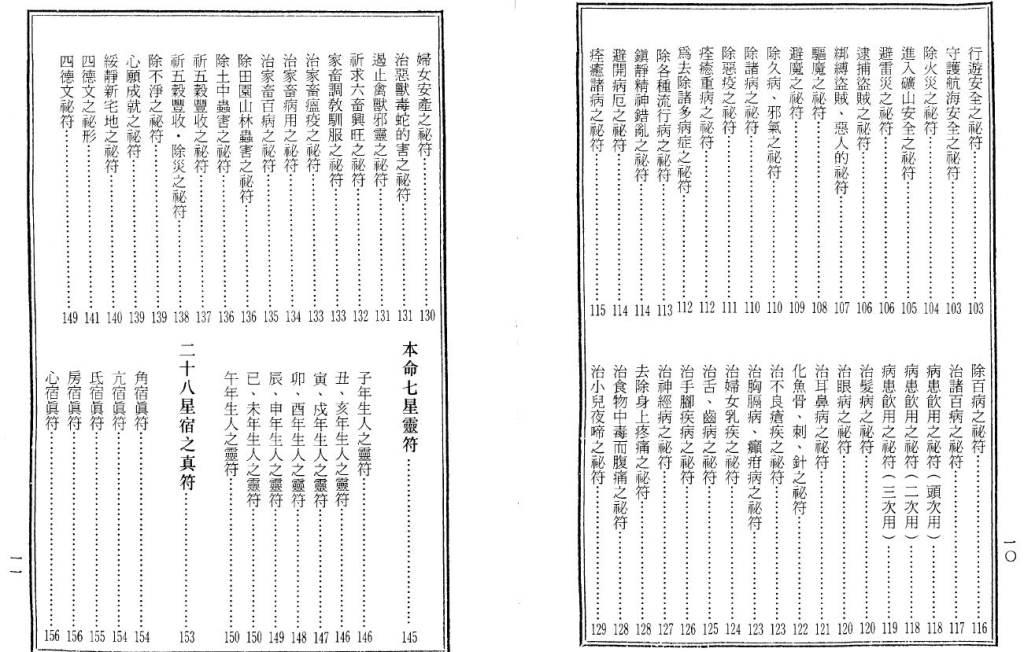 行遊安全之祕符……103
守護航海安全之祕符……103
除火災之祕符……104
進入礦山安全之祕符……105
避雷災之祕符……106
逮捕盜賊之祕符……106
綁縛盜賊、惡人的祕符……107
驅魔之祕符……108
避魔之祕符……109
除久病、邪氣之祕符……110
除諸病之祕符……110
除惡疫之祕符……111
痊癒重病之祕符……112
爲去除諸多病症之祕符……112
除各種流行病之祕符……113
鎭靜精神錯亂之祕符……114
避開病厄之祕符……114
痊癒諸病之祕符……115
除百病之祕符……116
治諸百病之祕符……117
病患飮用之祕符（頭次用）……118
病患飮用之祕符（二次用）……118
病患飮用之祕符（三次用）……119
治髮病之祕符……120
治眼病之祕符……120
治耳鼻病之祕符……121
化魚骨、刺、針之祕符……122
治不良瘡疾之祕符……123
治胸膈病、癲疳病之祕符……123
治婦女乳疾之祕符……124
治舌、齒病之祕符……125
治手腳疾病之祕符……126
治神經病之祕符……127
去除身上疼痛之祕符……128
治食物中毒而腹痛之祕符……128
治小兒夜啼之祕符……129
一〇
婦女安產之祕符……130
治惡獸毒蛇的害之祕符……131
遏止禽獸邪靈之祕符……131
祈求六畜興旺之祕符……132
家畜調敎馴服之祕符……133
治家畜瘟疫之祕符……133
治家畜病用之祕符……134
治家畜百病之祕符……135
除田園山林蟲害之祕符……136
除土中蟲害之祕符……136
祈五穀豐收之祕符……137
祈五穀豐收・除災之祕符……138
除不淨之祕符……139
心願成就之祕符……139
綏靜新宅地之祕符……140
四德文之祕形……141
四德文祕符……149
本命七星靈符……145
子年生人之靈符……146
丑、亥年生人之靈符……146
寅、戌年生人之靈符……147
卯、酉年生人之靈符……148
辰、申年生人之靈符……149
巳、未年生人之靈符……150
午年生人之靈符……150
二十八星宿之真符……153
角宿眞符……154
亢宿眞符……154
氐宿眞符……155
房宿眞符……156
心宿眞符……156
一一